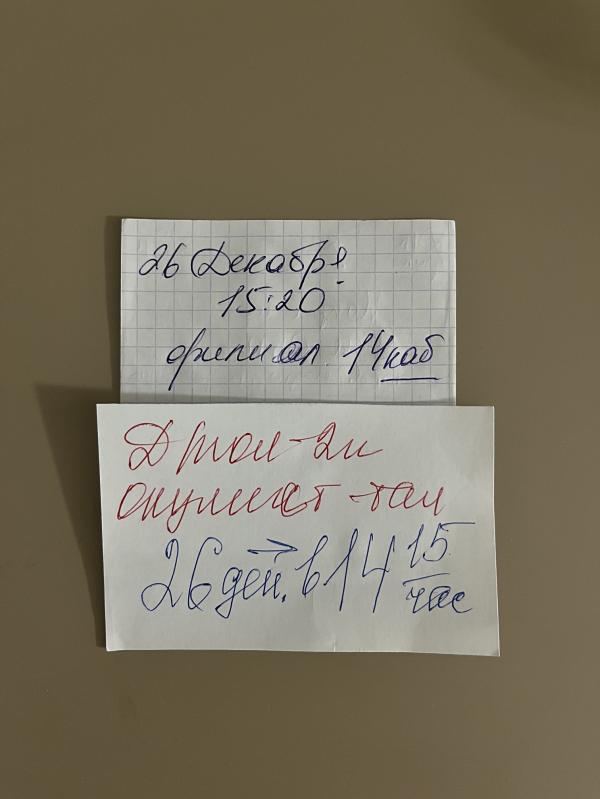 26 Декабря
15:20
филиал. 14 каб
окулист - тал
26 дек. в 14 15
час